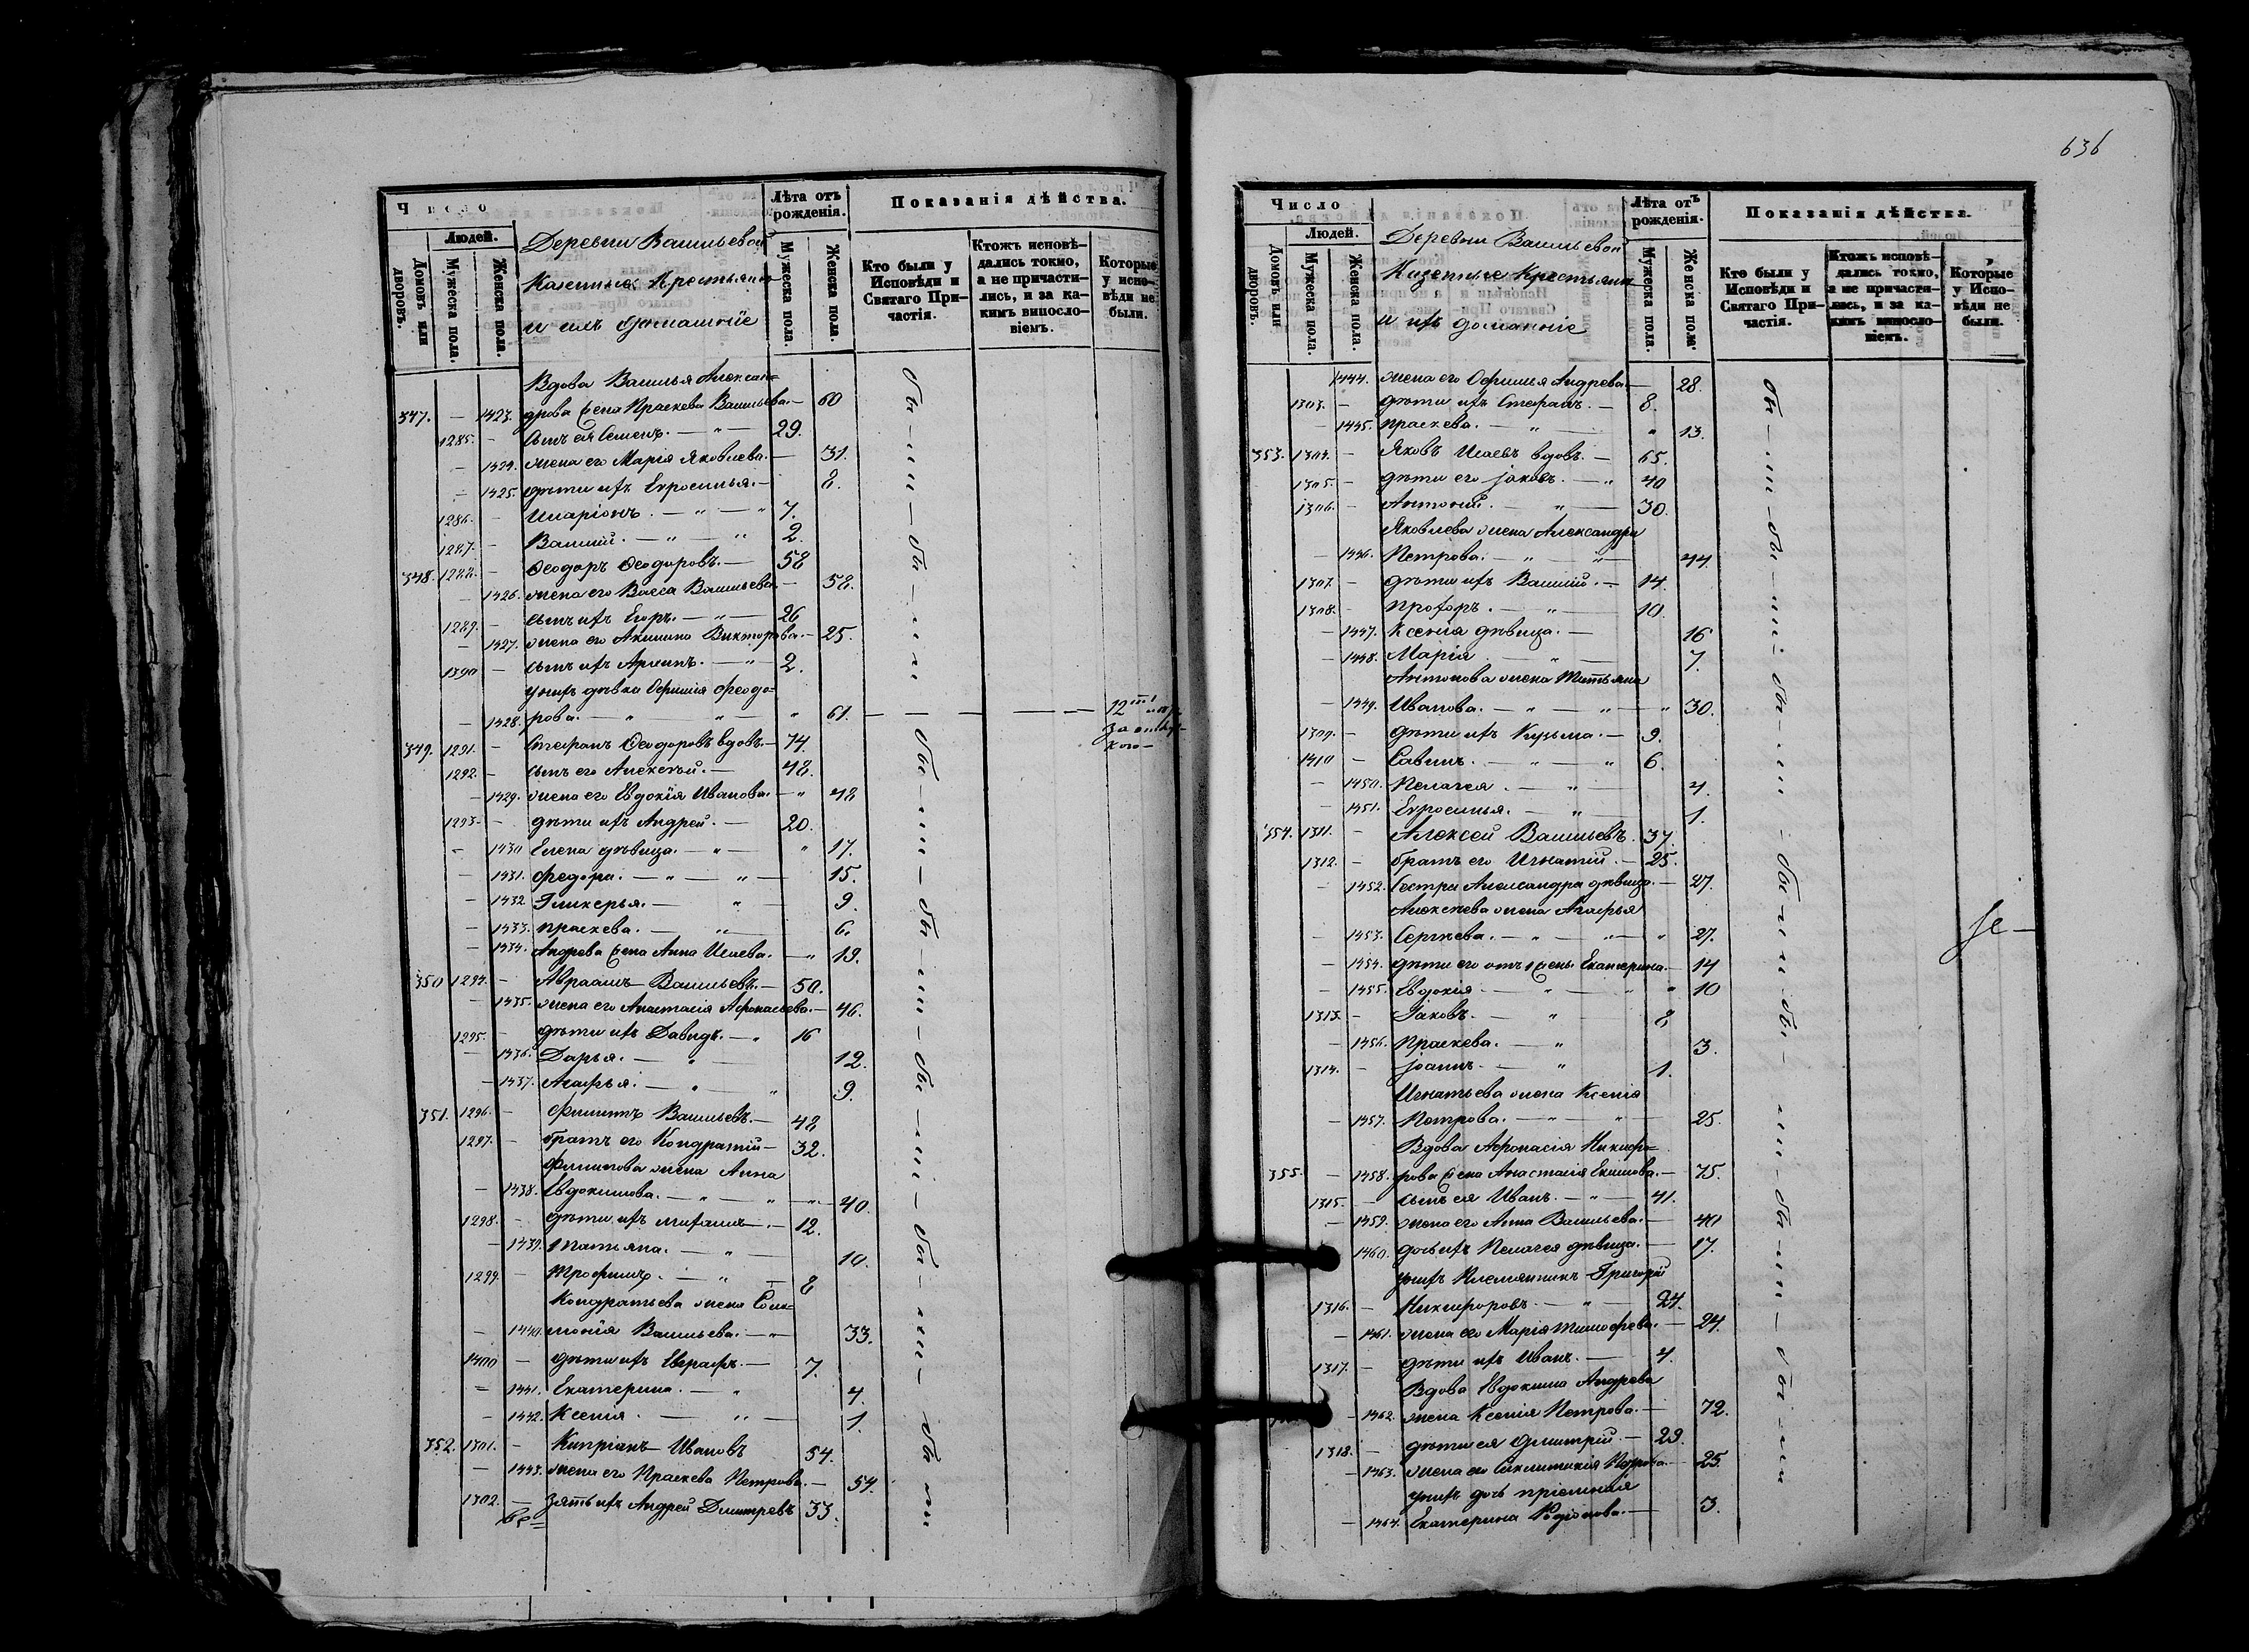 636
Число
Людей.
Домовъ или дворовъ.
Мужеска пола.
Женска пола.
Деревни Васильевой
Казенные Крестьяни
и ихъ домашніе
Лѣта отъ рожденія.
Мужеска пола.
Женска пола.
Показанія дѣйства.
Кто были у Исповѣди и Святаго Причастія.
Ктожъ исповѣдались токмо, а не причастились, и за какимъ винословіемъ.
Которые у исповѣди не были.
Вдова Василья Алексан=
347. — 1423. дрова жена Праскева Васильева. — 60
1285. — сынъ ея Семенъ. — " — 29.
— 1424. жена его Марія Яковлева. — 31.
— 1425. дѣти ихъ Евросинья. — 8.
1286. — Иларіонъ. — " — " 7.
1287. — Василій. — " — " 2.
348. 1288. — Ѳеодоръ Ѳеодоровъ. — 58
— 1426. жена его Васса Васильева. — 58.
1289. — сынъ ихъ Егоръ. — " — 26
— 1427. жена его Акилина Викторова. — 25.
1390 — сынъ ихъ Архипъ. — " — 2.
у нихъ дѣвка Офимія Феодо=
— 1428. рова. — " " — " 61. — — — — —
349. 1291. — Стефанъ Ѳеодоровъ вдовъ. — 74.
1292. — сынъ его Алексѣй. — 48.
— 1429. жена его Евдокія Иванова. — " 48
1293. — дѣти ихъ Андрей. — 20.
— 1430 Елена дѣвица. — " — " 17.
— 1431. Федора. — " — " — 15.
— 1432 Гликерья. — " — 9.
— 1433. Праскева. — " — 6.
— 1434. Андрева жена Анна Исаева. — " 19.
350 1294. — Авраамъ Васильевъ. — 50.
— 1435. жена его Анастасія Афонасьева. — 46.
1295. — дѣти ихъ Давидъ. — " 16
— 1436. Дарья. — " — 12.
— 1437. Агафья. — " — " 9.
351. 1296. — Филиппъ Васильевъ. — 48
1297. — братъ его Кондратій — 32.
Филипова жена Анна
— 1438. Евдокимова. — " — " — " — 40.
1298. — дѣти ихъ Михаилъ. — 12.
— 1439. Татьяна. — " — 10.
1299. — Трофимъ. — " — 8
Кондратьева жена Соло=
— 1440. монія Васильева. — " 33.
1400 — дѣти ихъ Евграфъ. — 7.
— 1441. Екатерина. — " 4.
— 1442. Ксенія. — " — 1.
352. 1301. — Кипріанъ Ивановъ 54.
— 1443. жена его Праскева Петрова. — 54.
1302. — зять ихъ Андрей Дмитревъ 33.
бы — ли — бы — ли
бы — ли — бы — ли — бы — ли — бы — ли — бы ли
Число
Людей.
Домовъ или дворовъ.
Мужеска пола.
Женска пола.
Деревни Васильевой
Казенные Крестьяни
и ихъ домашніе
Лѣта отъ рожденія.
Мужеска пола.
Женска пола.
Показанія дѣйства.
Кто были у Исповѣди и Святаго Причастія.
Ктожъ исповѣдались токмо, а не причастились, и за какимъ винословіемъ.
Которые у Исповѣди не были.
1444. жена его Офимья Андрева — 28.
1303. — дѣти ихъ Стефанъ. — 8.
— 1445. Праскева. — " — " 13.
353. 1304. — Яковъ Исаевъ вдовъ. — 65.
1305. — дѣти его Іаковъ. — " 40
1306. — Антоній. — " — 30.
Яковлева жена Александра
— 1446. Петрова. — " " — 44.
1307. — дѣти ихъ Василій. — 14.
1308. — Прохоръ. — " — 10.
— 1447. Ксенія дѣвица. — 16
— 1448. Марія — " — 7.
Антонова жена Татьяна
— 1449. Иванова. — " — " — " 30.
1309. — дѣти ихъ Кузьма. — 9.
1410 — Савинъ. — " — " 6.
— 1450. Пелагея. — " — 4.
— 1451. Евросинья. — " — 1.
354. 1311. — Алексей Васильевъ. 37.
1312. — братъ его Игнатій. — 25.
— 1452. Сестра Александра дѣвица. — 27.
Алексѣева жена Агафья
— 1453. Сергѣева. — " — " — " 27.
— 1454. дѣти его отъ 1 жены Екатерина. — 14
— 1455. Евдокія — " — " " 10
1313. — Іаковъ. — " — 8
— 1456. Праскева. — " 3.
1314. — Іоаннъ. — " 1.
Игнатьева жена Ксенія
— 1457. Петрова. — " — " — 25.
Вдова Афонасія Никифо=
355. — 1458. рова жена Анастасія Екимова. — 75.
1315. — сынъ ея Иванъ. — " — 41.
— 1459. жена его Анна Васильева. — 40
1460. дочь ихъ Пелагея дѣвица. — 17.
у нихъ племянникъ Григорій
1316. — Никифоровъ. — " — 24.
— 1461. жена его Марія Тимофева. — 24.
1317. — дѣти ихъ Иванъ. — 4.
Вдова Евдокима Андрева
— 1462. жена Ксенія Петрова. — 72.
1318. — дѣти ея Дмитрій. — 29.
— 1463. жена его Сиклитикія Петрова. — 25.
у нихъ дочь пріемная
— 1464. Екатерина Родіонова. — 3.
бы — ли — бы — ли — бы — ли — бы — ли — бы — ли — бы — ли — бы — ли